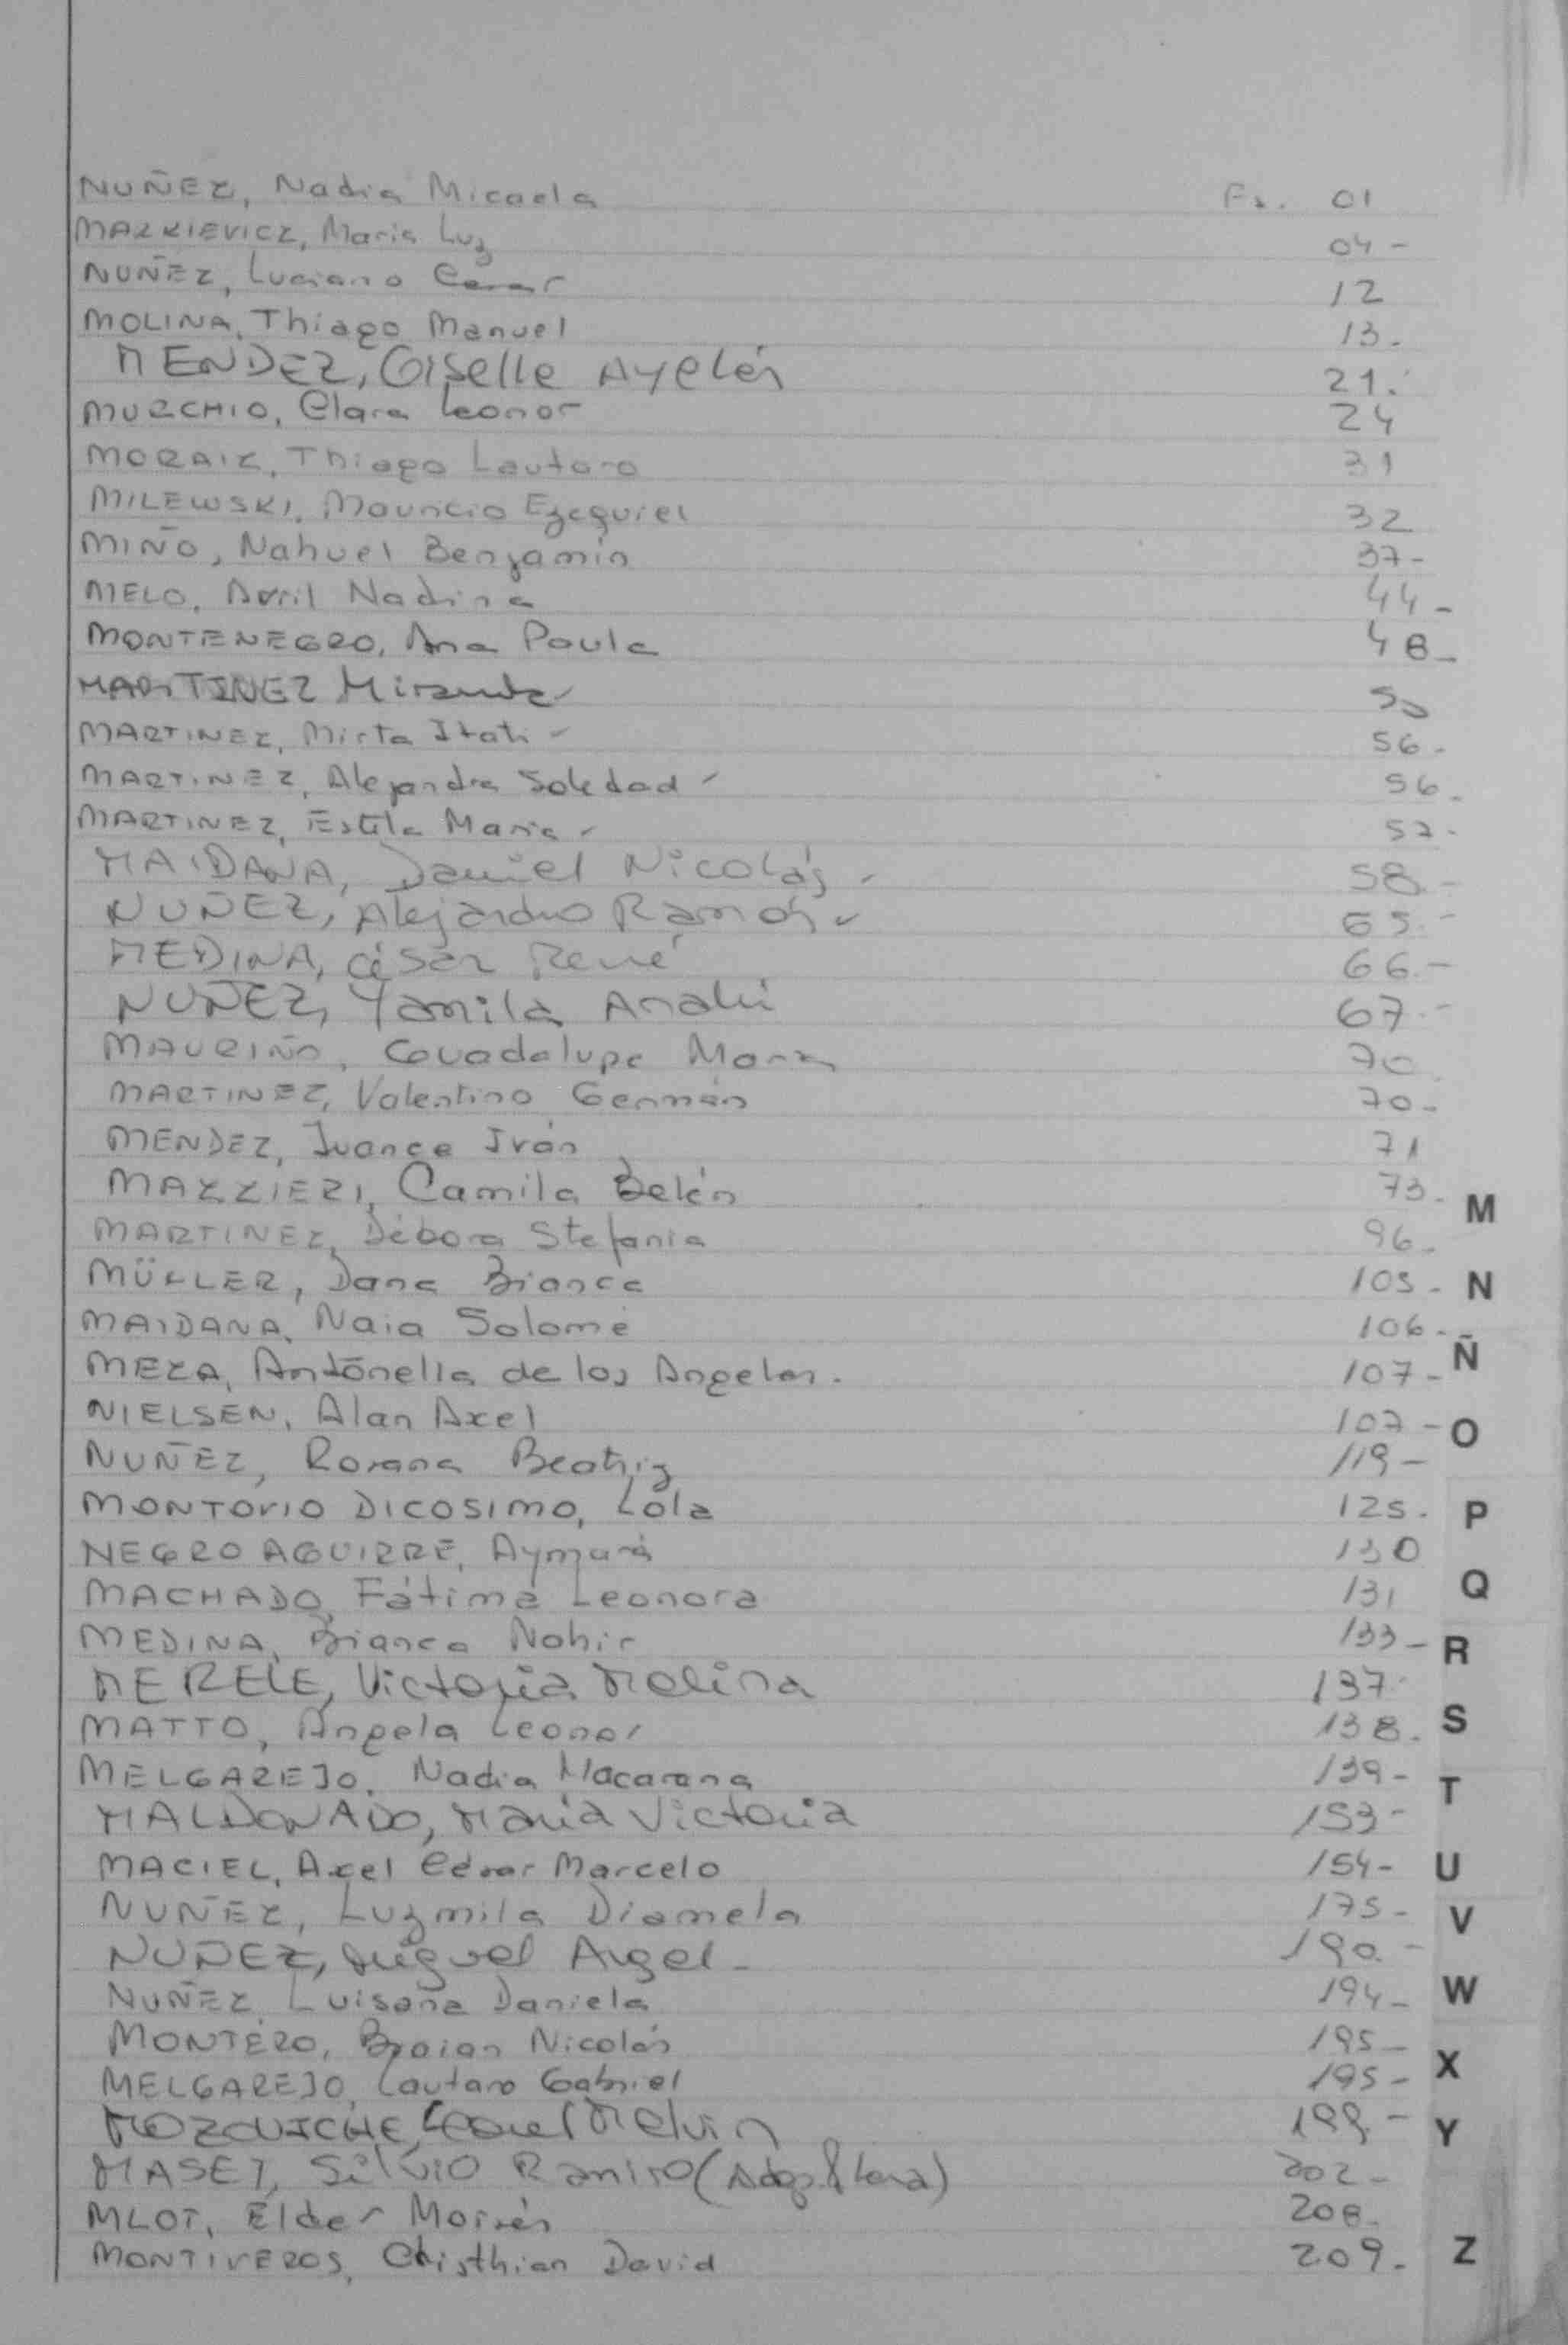 NUÑEZ, Nadia Micaela Fs. 01
MAZKIEVICZ, Maria Luz 04-
NUÑEZ, Luciano Cesar 12
MOLINA, Thiago Manuel 13.
MENDEZ, Giselle Ayelén 21.
MURCHIO, Clara Leonor 24
MORAIZ, Thiago Lautaro 31
MILEWSKI, Mauricio Ezequiel 32
MIÑO, Nahuel Benjamin 37-
MELO, Avril Nadina 44-
MONTENEGRO, Ana Paula 48-
MARTINEZ Miranda
MARTINEZ, Mirta Itati 56.
MARTINEZ, Alejandra Soledad 56.
MARTINEZ, Estela Maria 57.
MAIDANA, Daniel Nicolás 58.-
NUÑEZ, Alejandro Ramón 65.-
MEDINA, César René 66.-
NUÑEZ, Yamila Anahí 67.-
MAURIÑO, Guadalupe Maria 70
MARTINEZ, Valentino Germán 70-
MENDEZ, Juance Iván 71
MAZZIERI, Camila Belén 73.
MARTINEZ, Débora Stefania 96.
MÜLLER, Dana Bianca 105.
MAIDANA, Naia Solomé 106.
MEZA, Antonella de los Angeles. 107-
NIELSEN, Alan Axel 107-
NUÑEZ, Rosana Beatriz 119-
MONTORIO DICOSIMO, Lola 125.
NEGRO AGUIRRE, Aymará 130
MACHADO, Fátima Leonora 131
MEDINA, Bianca Nahir 133-
MERELE, Victoria Melina 137.
MATTO, Angela Leonor 138.
MELGAREJO, Nadia Macarena 139-
MALDONADO, Maria Victoria 153-
MACIEL, Axel César Marcelo 154-
NUÑEZ, Luzmila Diamela 175-
NUÑEZ, Miguel Angel- 190.-
NUÑEZ, Luisana Daniela 194-
MONTERO, Braian Nicolás 195-
MELGAREJO, Lautaro Gabriel 195-
MOZNICHE, Leonel Melvin 199.-
MASET, Silvio Ramiro 202-
MLOT, Elder Moisés 208.
MONTIVEROS, Christhian David 209-
M
N
Ñ
O
P
Q
R
S
T
U
V
W
X
Y
Z